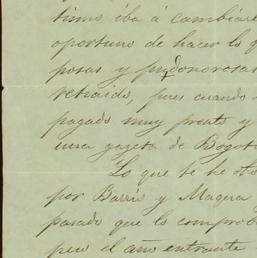 timo, iba á cambiar
oportuno de hacer lo q
posas y pundonorosas
retraido, pues cuando
pagado muy pronto y
una gazeta de Bogot
Lo que te he
por Barris y Magua
pasado que lo comprob
pero el año entrante